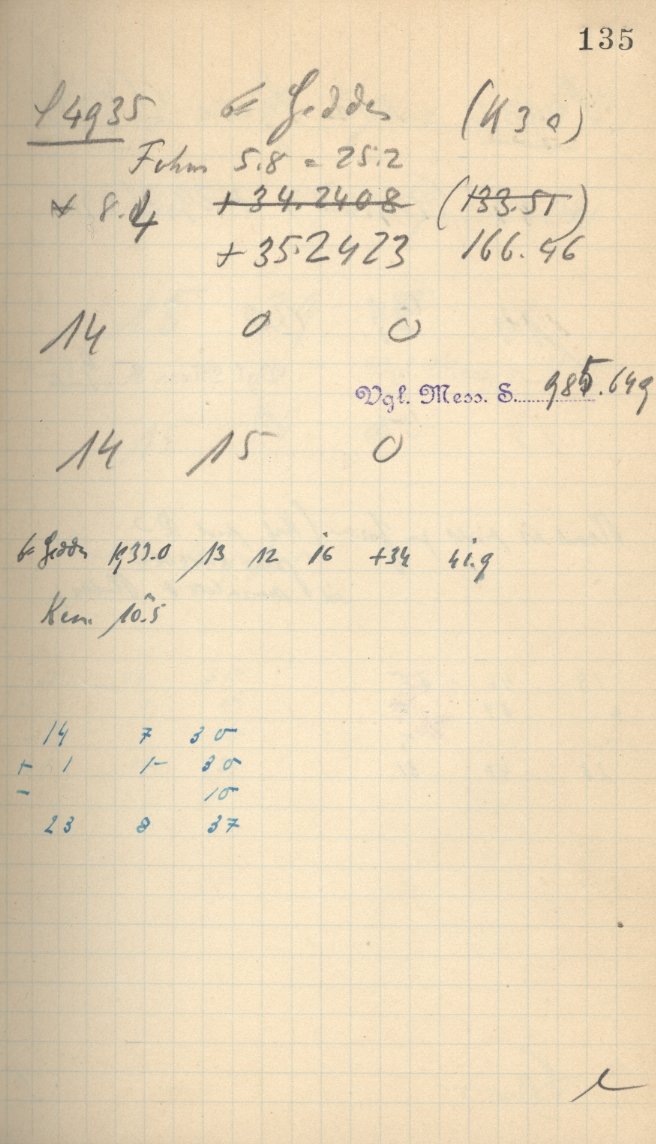 135
P4935 Geddes (K 3 a)
5.8 = 25.2
8.4 +34.2408 (133.51)
+35.2423 166.46
14 0 0
Vgl. Mess. S. 985.649
14 15 0
Geddes 1933.0 13 12 16 +34 41.9
Kem. 10.5
14 7 30
+ 1 1 30
- 10
23 8 37